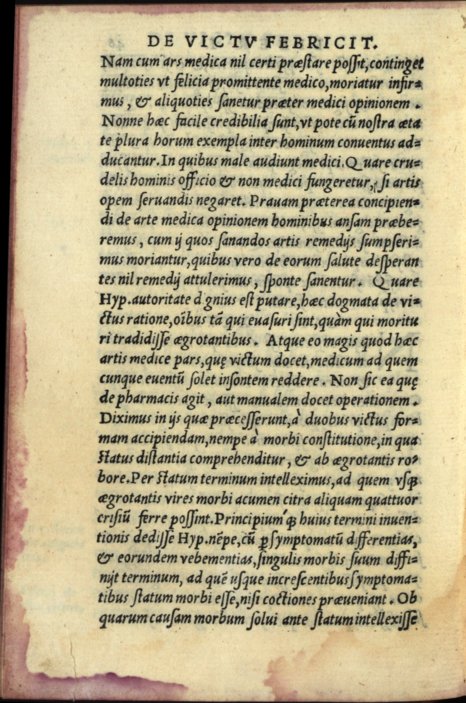 DE VICTV FEBRICIT.
Nam cum ars medica nil certi præstare possit, continget
multoties vt felicia promittente medico, moriatur infir=
mus, & aliquoties sanetur præter medici opinionem.
Nonne hæc facile credibilia sunt, vt pote cũ nostra æta
te plura horum exempla inter hominum conuentus ad=
ducantur. In quibus male audiunt medici. Quare cru=
delis hominis officio & non medici fungeretur, si artis
opem seruandis negaret. Prauam præterea concipien=
di de arte medica opinionem hominibus ansam præbe=
remus, cum ij quos sanandos artis remedijs sumpseri=
mus moriantur, quibus vero de eorum salute desperan
tes nil remedij attulerimus, sponte sanentur. Quare
Hyp. autoritate dignius est putare, hæc dogmata de vi=
ctus ratione, oĩbus tã qui euasuri sint, quàm qui moritu
ri tradidisse ægrotantibus. Atque eo magis quod hæc
artis medice pars, quę victum docet, medicum ad quem
cunque euentũ solet insontem reddere. Non sic ea quę
de pharmacis agit, aut manualem docet operationem.
Diximus in ijs quæ præcesserunt, à duobus victus for=
mam accipiendam, nempe à morbi constitutione, in qua
status distantia comprehenditur, & ab ægrotantis ro=
bore. Per statum terminum intelleximus, ad quem vsq;
ægrotantis vires morbi acumen citra aliquam quattuor
crisiũ ferre possint. Principium q; huius termini inuen=
tionis dedisse Hyp. nẽpe, cũ ꝑ symptomatũ differentias,
& eorundem vehementias, singulis morbis suum diffi=
nijt terminum, ad quẽ usque increscentibus symptoma=
tibus statum morbi esse, nisi coctiones præueniant. Ob
quarum causam morbum solui ante statum intellexisse